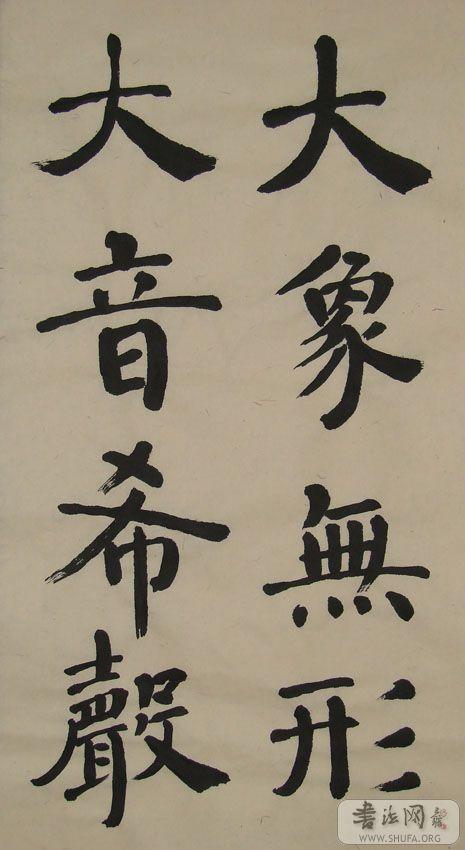 大象無形
大音希聲
書法网
WWW.SHUFA.ORG